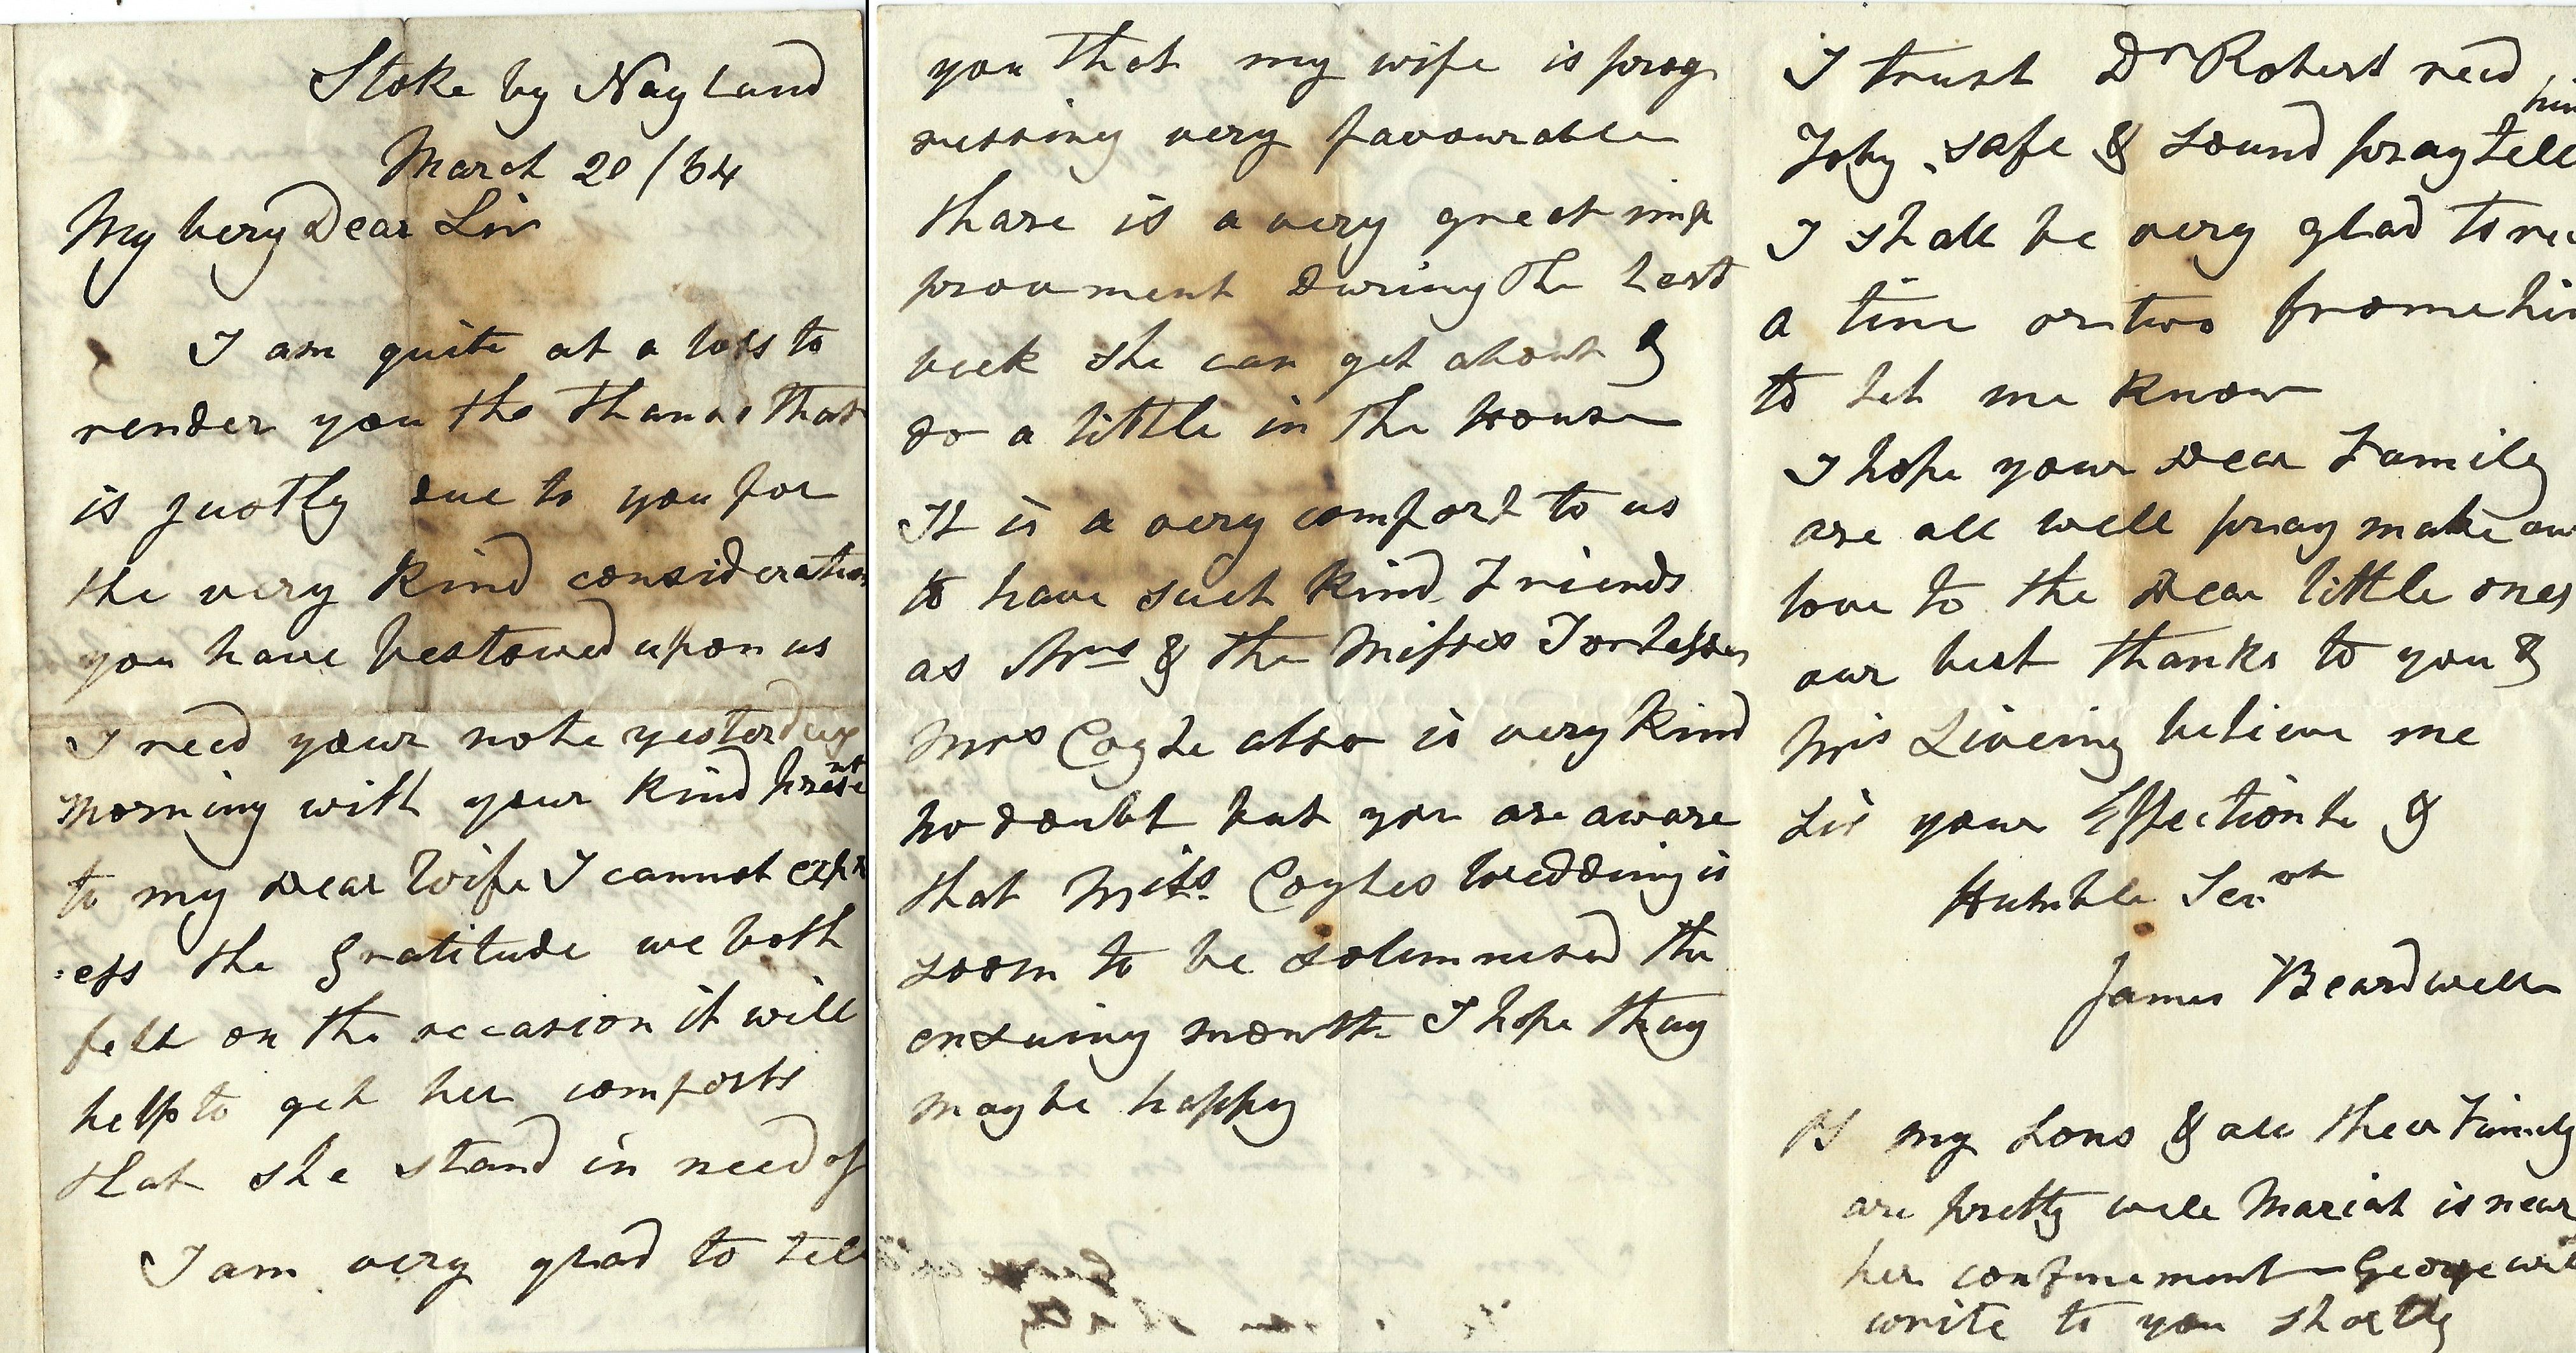 Stoke by Nayland
March 20/64
My very Dear Sir
I am quite at a loss to
render you the thanks that
is justly due to you for
the very kind consideration
you have bestowed upon us
I recd your note yesterday
morning with your kind present
to my dear Wife I cannot expr
:ess the gratitude we both
felt on the occasion it will
help to get her comforts
that she stand in need of
I am very glad to tell
you that my wife is prog
ressing very favourable
thare is a very great imp
provment during the last
week she can get about &
do a little in the House
It is a very comfort to us
to have such kind Friends
as Mrs & the Misses
Mrs Coyle also is very kind
no doubt but you are aware
that Miss Coyles Wedding is
soon to be solemnised the
ensuing month I hope thay
may be happy
I trust Dr Robert recd
Toby safe & sound pray tell
him
I shall be very glad to
a time or two from
to let me know
I hope your Dear Family
are all well pray make
love to the Dear little ones
our best thanks to you &
Mrs Liveing believe me
Sir your Effectionte &
Humble Servt
James Beardwell
PS my Sons & all their Family
are pretty well Mariah is near
her confinement George will
write to you shortly